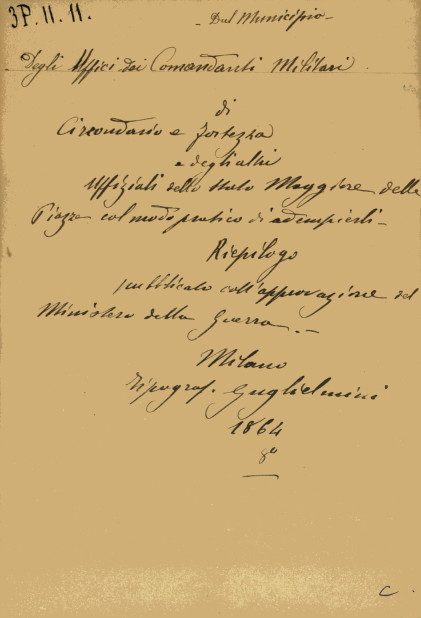 3P. 11. 11.
- Dal Municipio -
Degli Uffici dei Comandanti Militari
di
Circondario e Fortezza
e degli altri
Uffiziali dello Stato Maggiore delle
Piazze col modo pratico di adempierli -
Riepilogo
pubblicato coll'approvazione del
Ministero della Guerra. -
Milano
Tipograf. Guglielmini
1864
8º
C.